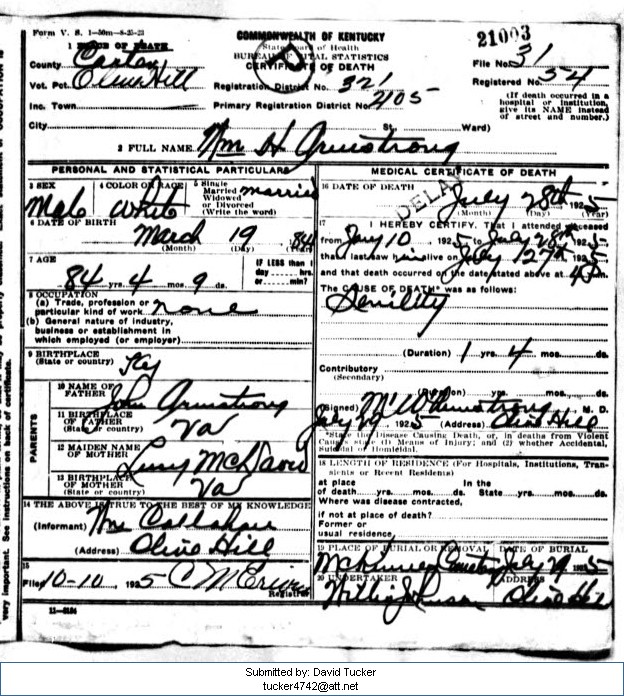 Form V. S. 1-50m-8-25-23
COMMONWEALTH OF KENTUCKY
State Board of Health
BUREAU OF VITAL STATISTICS
CERTIFICATE OF DEATH
21003
1 PLACE OF DEATH
County Carter
File No. 31
Vot. Pct. Olive Hill
Registration District No. 321
Registered No. 54
Inc. Town
Primary Registration District No. 2405
(If death occurred in a hospital or institution, give its NAME instead of street and number.)
City St. Ward)
2 FULL NAME Wm H Armstrong
PERSONAL AND STATISTICAL PARTICULARS
3 SEX Male
4 COLOR OR RACE White
5 Single Married Widowed or Divorced (Write the word) married
6 DATE OF BIRTH March 19
(Month) (Day) (Year)
7 AGE 84 yrs. 4 mos. 9 ds.
IF LESS than 1 day ... hrs. or ... min?
8 OCCUPATION
(a) Trade, profession or particular kind of work none
(b) General nature of industry, business or establishment in which employed (or employer)
9 BIRTHPLACE (State or country) Ky
PARENTS
10 NAME OF FATHER John Armstrong
11 BIRTHPLACE OF FATHER (State or country) Va
12 MAIDEN NAME OF MOTHER Lucy McDavid
13 BIRTHPLACE OF MOTHER (State or country) Va
14 THE ABOVE IS TRUE TO THE BEST OF MY KNOWLEDGE
(Informant) Wm
(Address) Olive Hill
15
Filed 10-10 1925
Registrar
11-3184
MEDICAL CERTIFICATE OF DEATH
DELAYED
16 DATE OF DEATH July 28th 1925
(Month) (Day) (Year)
17 I HEREBY CERTIFY, That I attended deceased
from Jany 10 1925 to July 28th 1925
that I last saw him alive on July 27th 1925
and that death occurred on the date stated above at 4 P m.
The CAUSE OF DEATH* was as follows:
Senility
(Duration) 1 yrs. 4 mos. ds.
Contributory
(Secondary)
(Duration) yrs. mos. ds.
(Signed) Armstrong M. D.
July 29 1925 (Address) Olive Hill
*State the Disease Causing Death, or, in deaths from Violent Causes state (1) Means of Injury; and (2) whether Accidental, Suicidal or Homicidal.
18 LENGTH OF RESIDENCE (For Hospitals, Institutions, Transients or Recent Residents)
at place of death yrs. mos. ds. In the State yrs. mos. ds.
Where was disease contracted,
if not at place of death?
Former or usual residence
19 PLACE OF BURIAL OR REMOVAL
DATE OF BURIAL
Cemetery July 29 1925
20 UNDERTAKER
ADDRESS
Johnson Olive Hill
very important. See instructions on back of certificate.
Submitted by: David Tucker
tucker4742@att.net